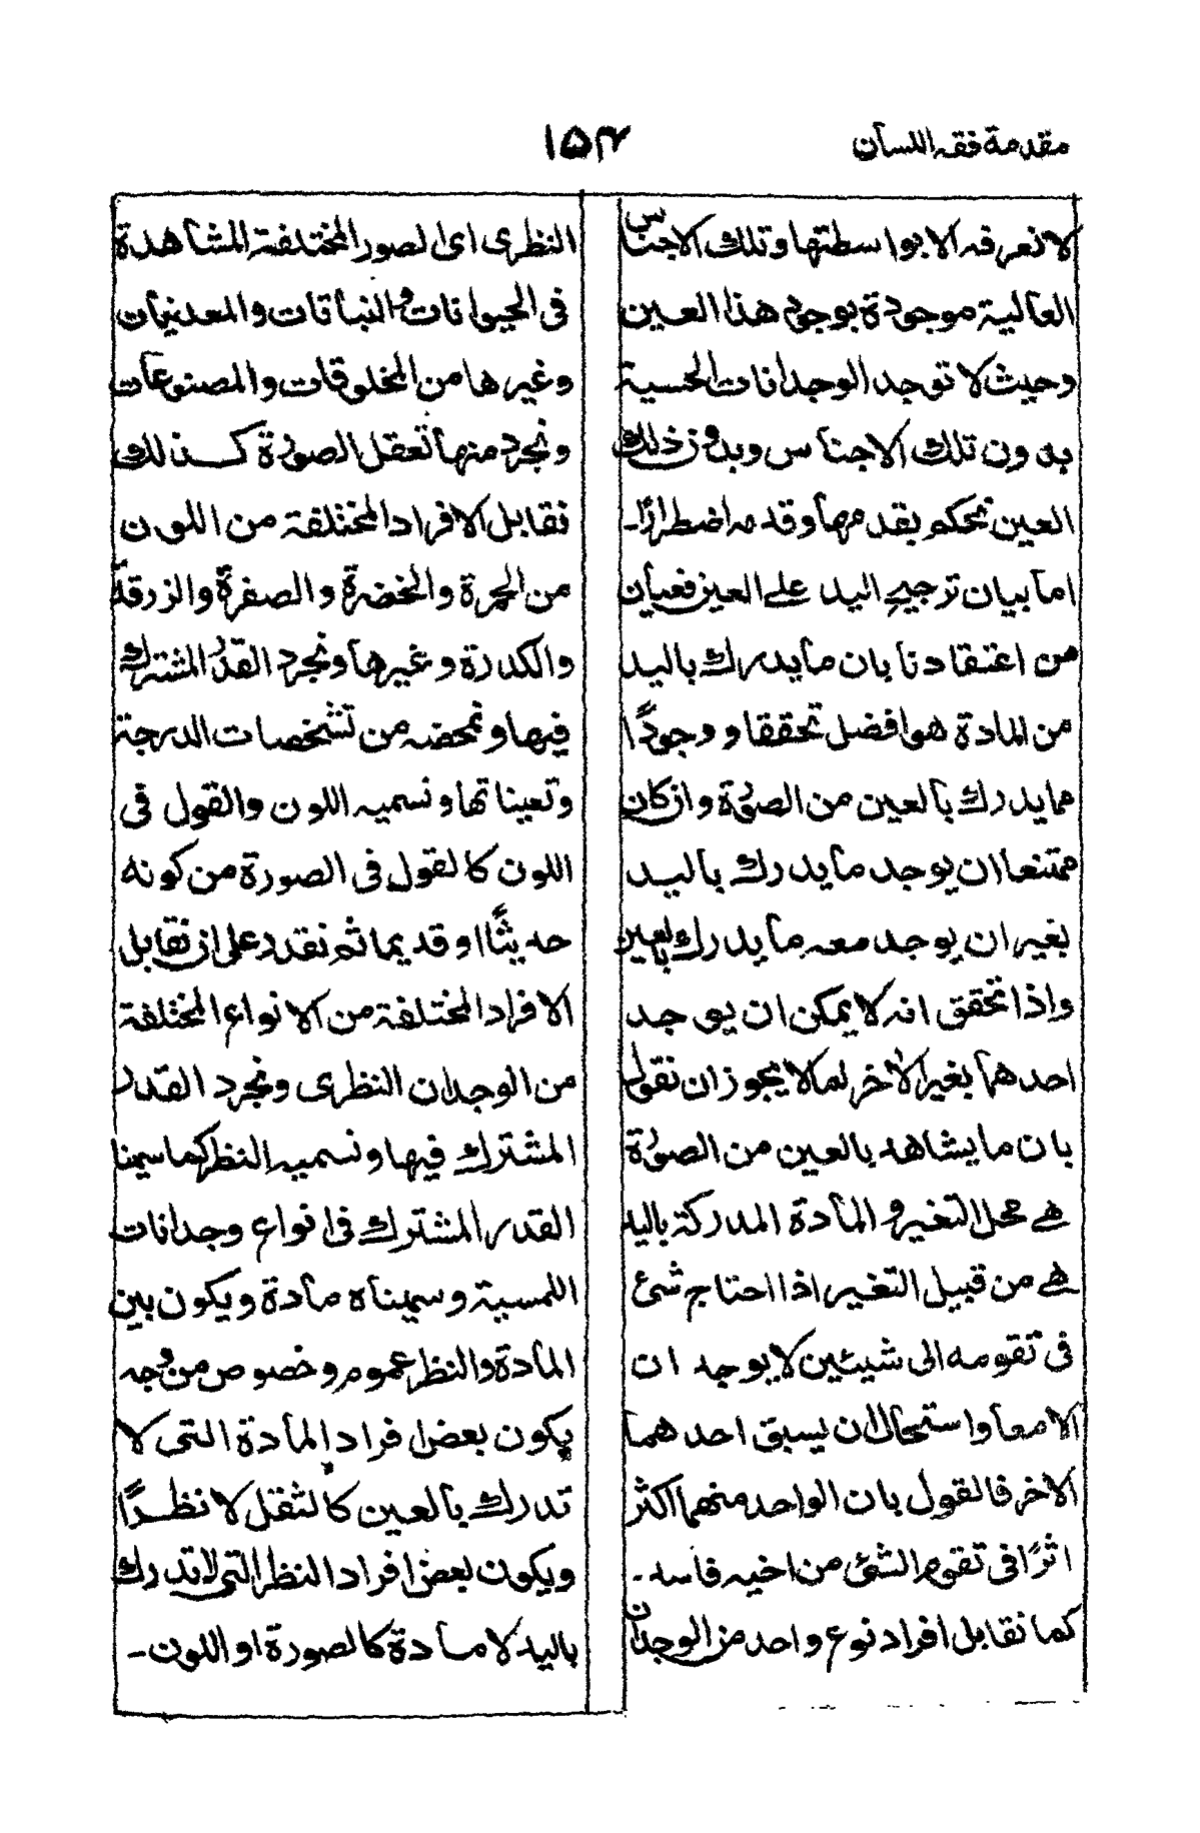 مقدمة فقه اللسان
١٥٤
لا نعرفه الا بواسطتها وتلك الاجناس
العالية موجودة بوجود هذا العين
وحيث لا توجد الوجدانات الحسية
بدون تلك الاجناس وبدون ذلك
العين نحكم بقدمها وقدمه اضطرارًا۔
اما بيان ترجيح اليد على العين فعيان
من اعتقادنا بان ما يدرك باليد
من المادة هو افضل تحققا و وجودًا
مما يدرك بالعين من الصورة وان كان
ممتنعا ان يوجد ما يدرك باليد
بغير ان يوجد معه ما يدرك بالعين
واذا تحقق انه لا يمكن ان يوجد
احدهما بغير الآخر لما لا يجوز ان نقول
بان ما يشاهد بالعين من الصورة
هے محل التغير و المادة المدركة باليد
هے من قبيل التغير اذا احتاج شئ
فى تقومه الى شيئين لا يوجد ان
الا معا واستحال ان يسبق احدهما
الاخر فالقول بان الواحد منهما اكثر
اثرًا فى تقوم الشئ من اخيه فاسد۔
كما نقابل افراد نوع واحد من الوجدان
النظرى اى الصور المختلفة المشاهدة
فى الحيوانات والنباتات والمعدنيات
وغيرها من المخلوقات والمصنوعات
ونجرد منها تعقل الصورة كذلك
نقابل الافراد المختلفة من اللون
من الحمرة والخضرة والصفرة والزرقة
والكدرة وغيرها ونجرد القدر المشترك
فيها ونمحضه من تشخصات الدرجة
وتعيناتها ونسميه اللون والقول فى
اللون كالقول فى الصورة من كونه
حديثًا او قديما ثم نقدر على ان نقابل
الافراد المختلفة من الانواع المختلفة
من الوجدان النظرى ونجرد القدر
المشترك فيها ونسميه النظر كما سمينا
القدر المشترك فى انواع وجدانات
اللمسية وسميناه مادة ويكون بين
المادة والنظر عموم وخصوص من وجه
يكون بعض افراد المادة التى لا
تدرك بالعين كالثقل لا نظرًا
ويكون بعض افراد النظر التى لا تدرك
باليد لا مادة كالصورة او اللون۔